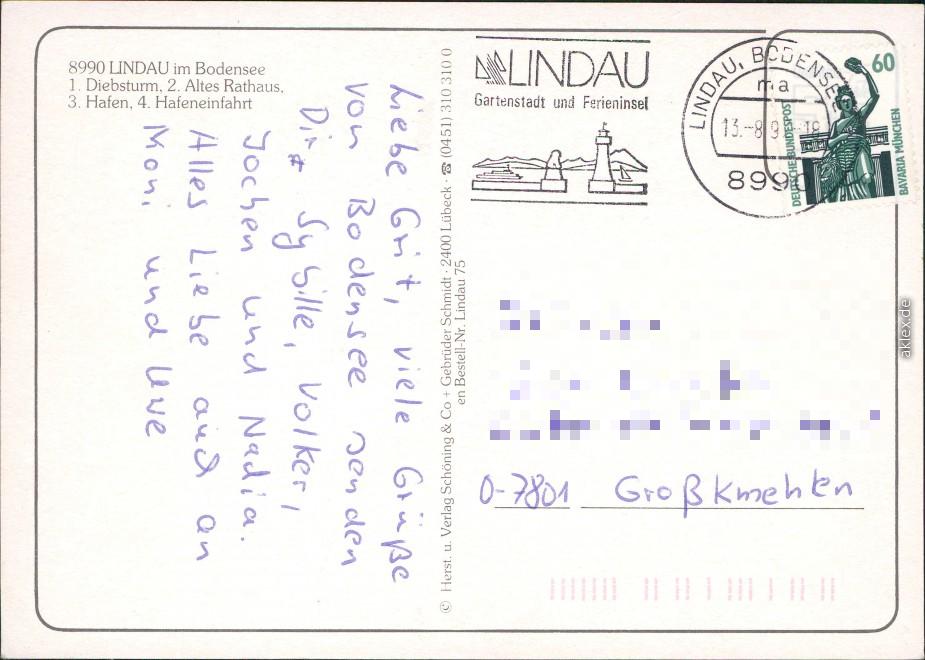 8990 LINDAU im Bodensee
1. Diebsturm, 2. Altes Rathaus,
3. Hafen, 4. Hafeneinfahrt
Liebe Grit, viele Grüße
von Bodensee senden
Dir Sybille, Volker,
Jochen und Nadia.
Alles Liebe auch an
Moni und Uwe
© Herst. u. Verlag Schöning & Co + Gebrüder Schmidt · 2400 Lübeck · ☎ (0451) 310 310 0
en Bestell-Nr. Lindau 75
LINDAU
Gartenstadt und Ferieninsel
LINDAU, BODENSEE
ma
13.-8.9 -18
8990
60
DEUTSCHE BUNDESPOST
BAVARIA MÜNCHEN
O-7801 Großkmehlen
aklex.de